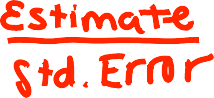 Estimate
Std. Error